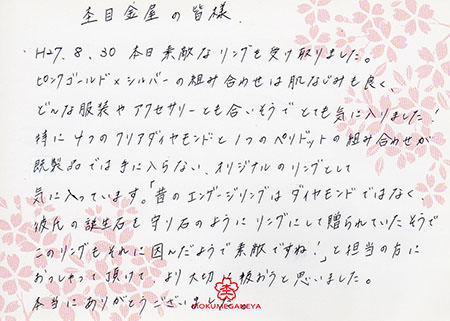 杢目金屋の皆様
H27.8.30 本日素敵なリングを受け取りました。
ピンクゴールド×シルバーの組み合わせは肌なじみも良く、
どんな服装やアクセサリーとも合いそうでとても気に入りました!
特に4つのクリアダイヤモンドと1つのペリドットの組み合わせが
既製品では手に入らない、オリジナルのリングとして
気に入っています。「昔のエンゲージリングはダイヤモンドではなく、
彼氏の誕生石を守り石のようにリングにして贈られていたそうで
このリングもそれに因んだようで素敵ですね!」と担当の方に
おっしゃって頂けて、より大切に扱おうと思いました。
本当にありがとうございました。
MOKUMEGANEYA